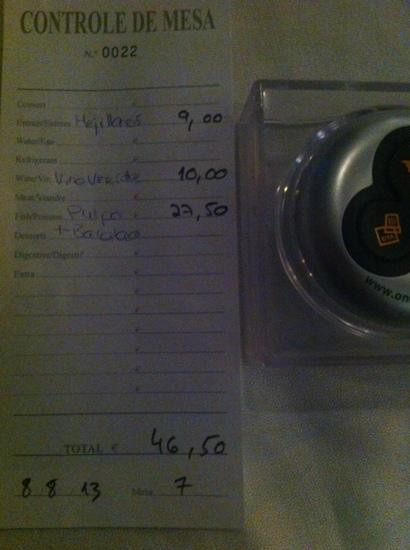 CONTROLE DE MESA
N.º 0022
Couvert €
Entrair/Entrées Mejillones € 9,00
Water/Eau €
Refrigerant €
Wine/Vin Vino Verde 10,00
Meat/Viandes €
Fish/Poissons Pulpo € 27,50
Desserts + Bacalao
Digestive/Digestif €
Extra €
€
€
€
€
€
€
TOTAL € 46,50
8 8 13 Mesa 7
www.on